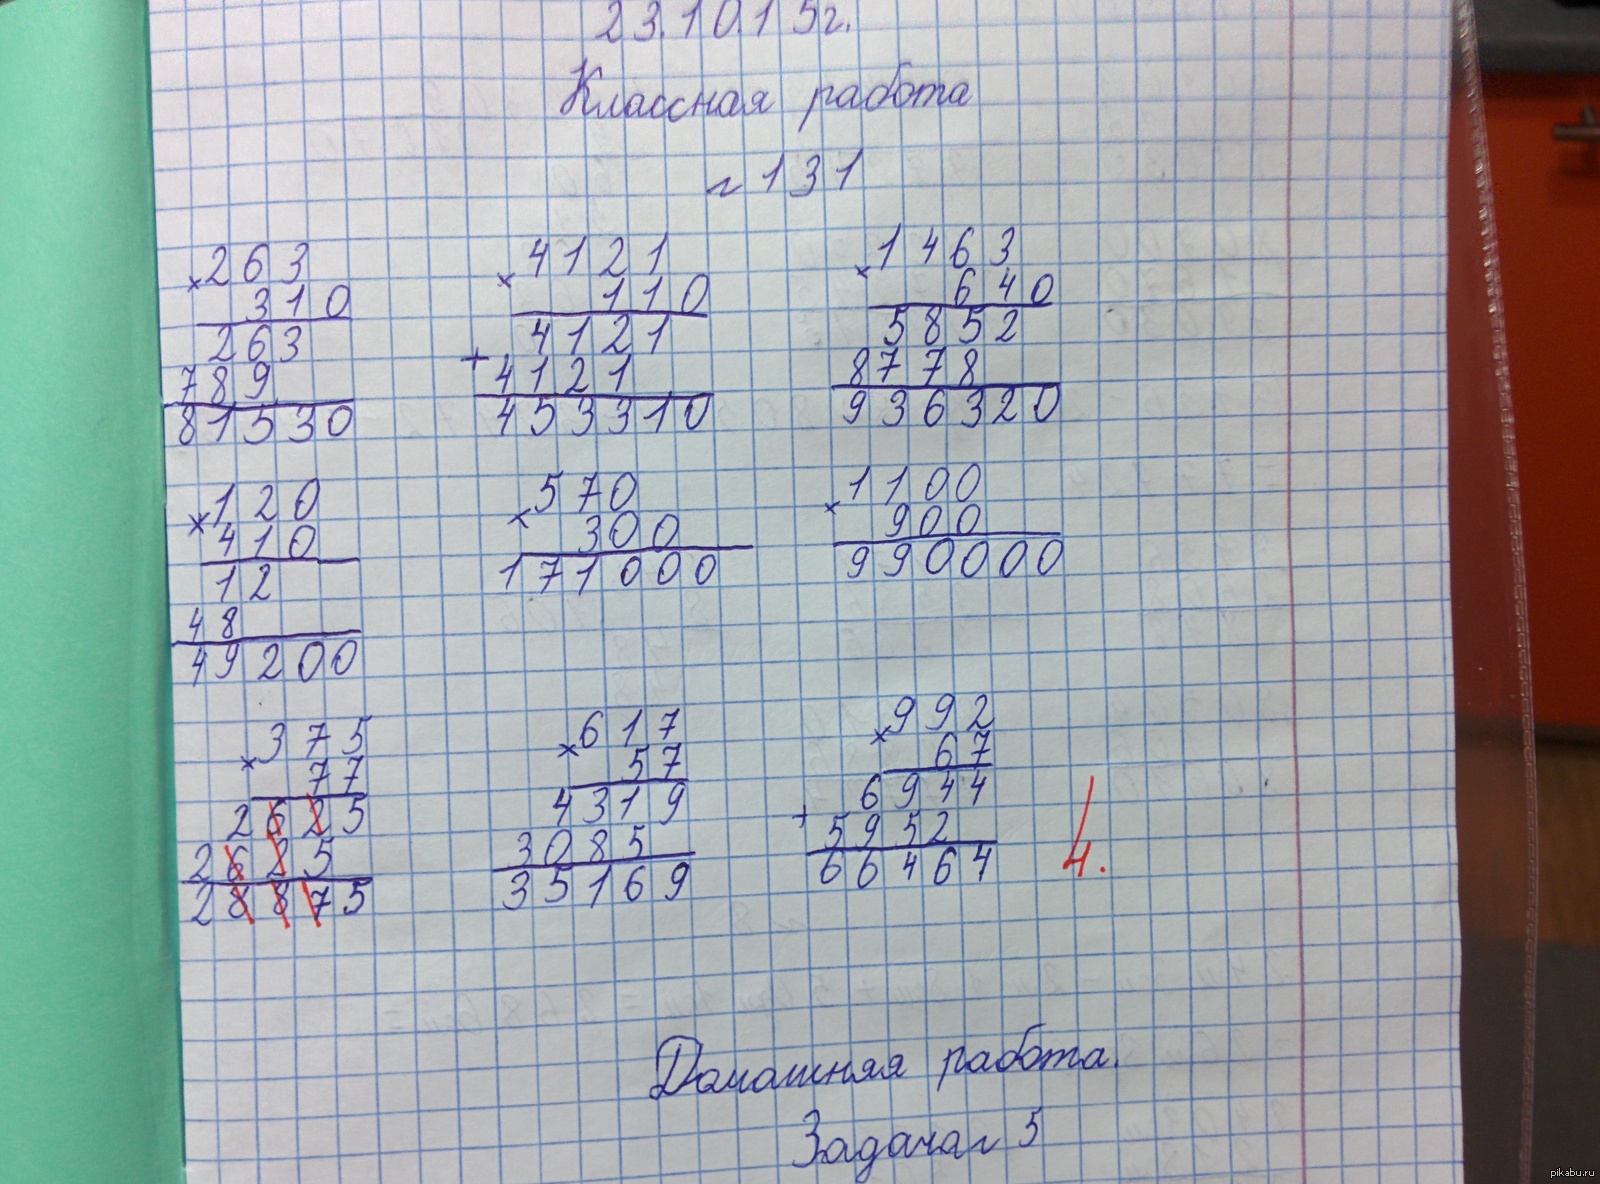 23.10.15г.
Классная работа
№131
×263
310
263
789
81530
×4121
110
4121
+4121
453310
×1463
640
5852
8778
936320
×120
410
12
48
49200
×570
300
171000
×1100
900
990000
×375
77
2625
2625
28875
×617
57
4319
3085
35169
×992
67
6944
+5952
66464
4.
Домашняя работа.
Задача №5
pikabu.ru